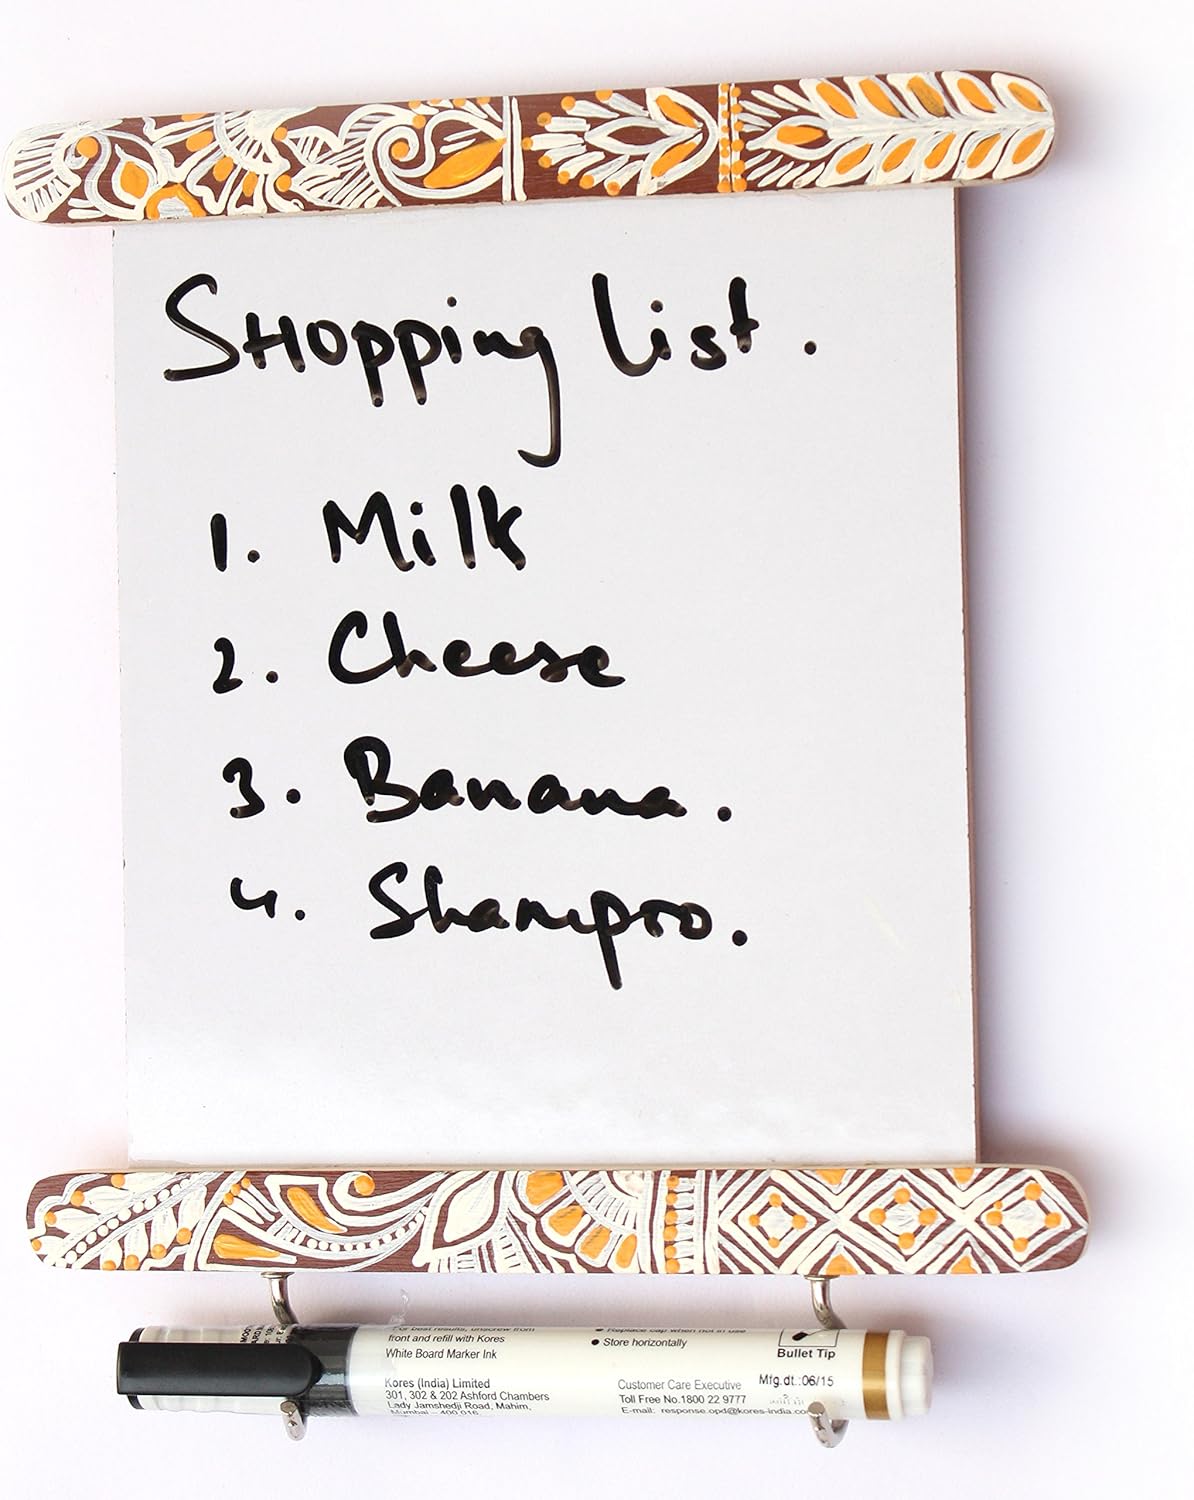 Shopping list.
1. Milk
2. Cheese
3. Banana.
4. Shampoo.
For best results, unscrew from
front and refill with Kores
White Board Marker Ink
Kores (India) Limited
301, 302 & 202 Ashford Chambers
Lady Jamshedji Road, Mahim,
Mumbai – 400 016
• Replace cap when not in use
• Store horizontally
Customer Care Executive
Toll Free No.1800 22 9777
E-mail: response.opd@kores-india.co
Bullet Tip
Mfg.dt.:06/15